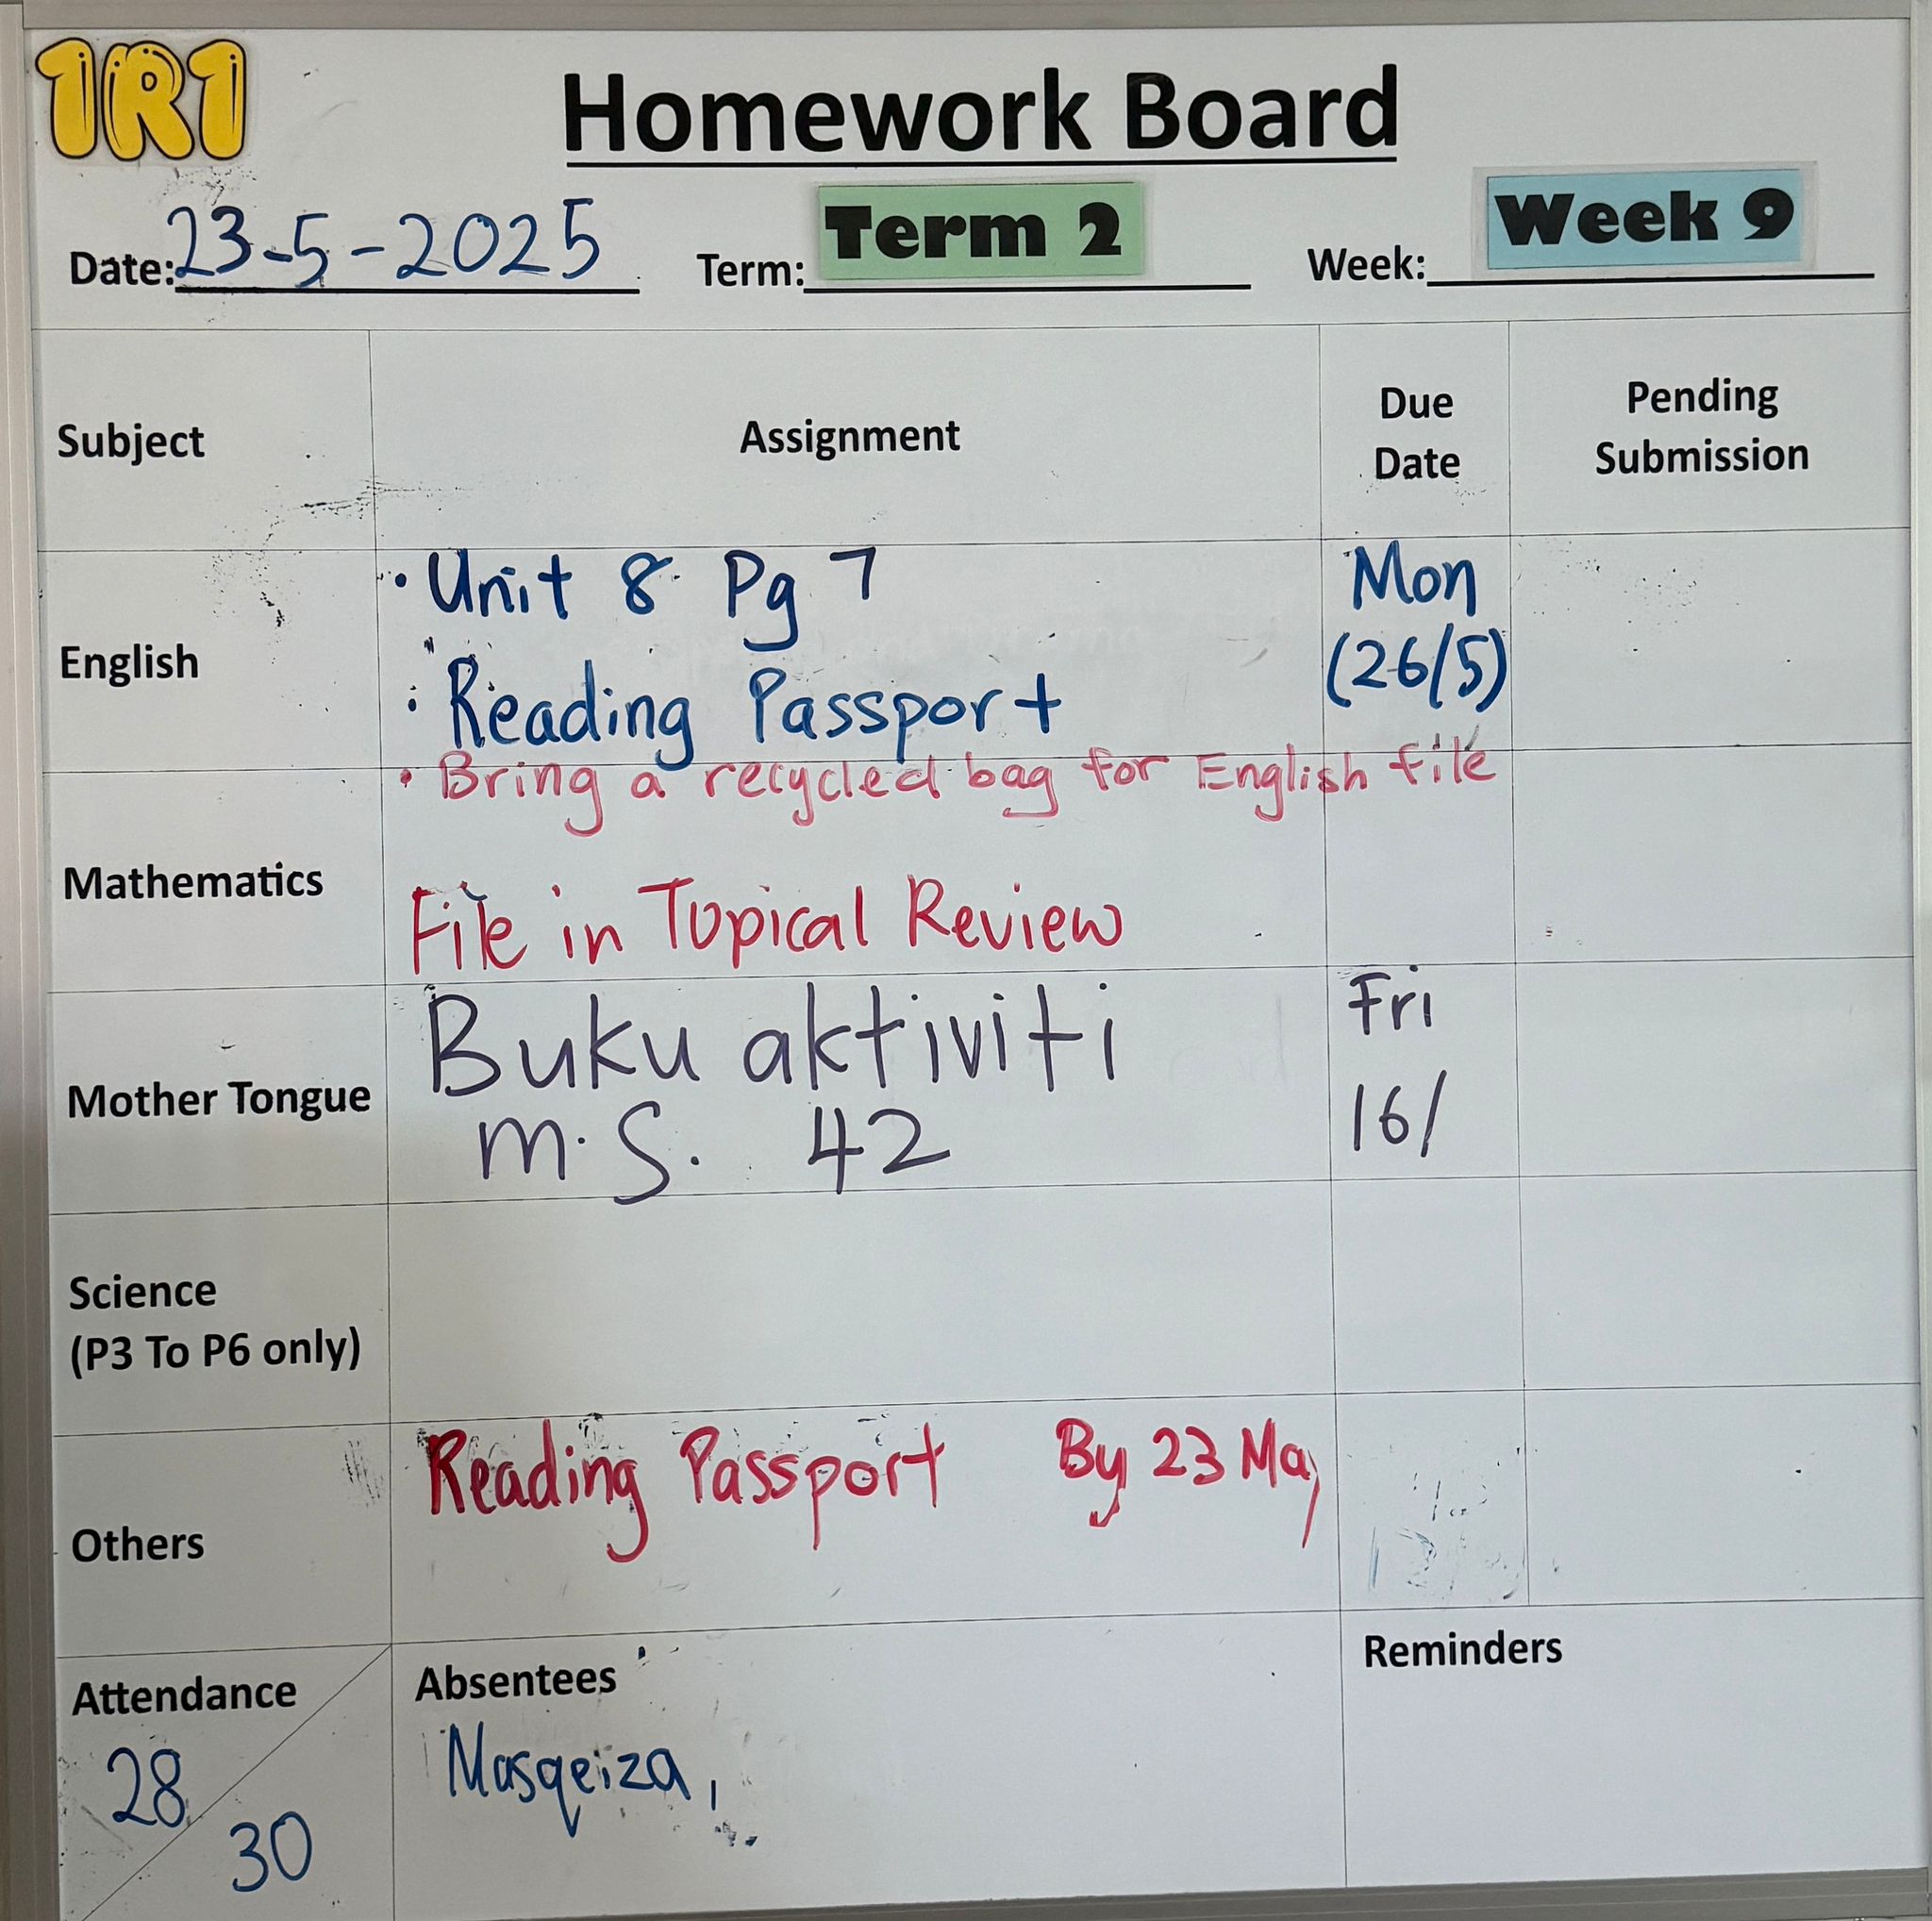 1R1
Homework Board
Date: 23-5-2025 Term: Term 2 Week: Week 9
Subject Assignment Due Date Pending Submission
English
• Unit 8 Pg 7
Mon
(26/5)
• Reading Passport
• Bring a recycled bag for English file
Mathematics
File in Topical Review
Mother Tongue
Buku aktiviti
m.s. 42
Fri
16/
Science
(P3 To P6 only)
Others
Reading Passport By 23 May
Attendance
28
30
Absentees
Masqeiza,
Reminders